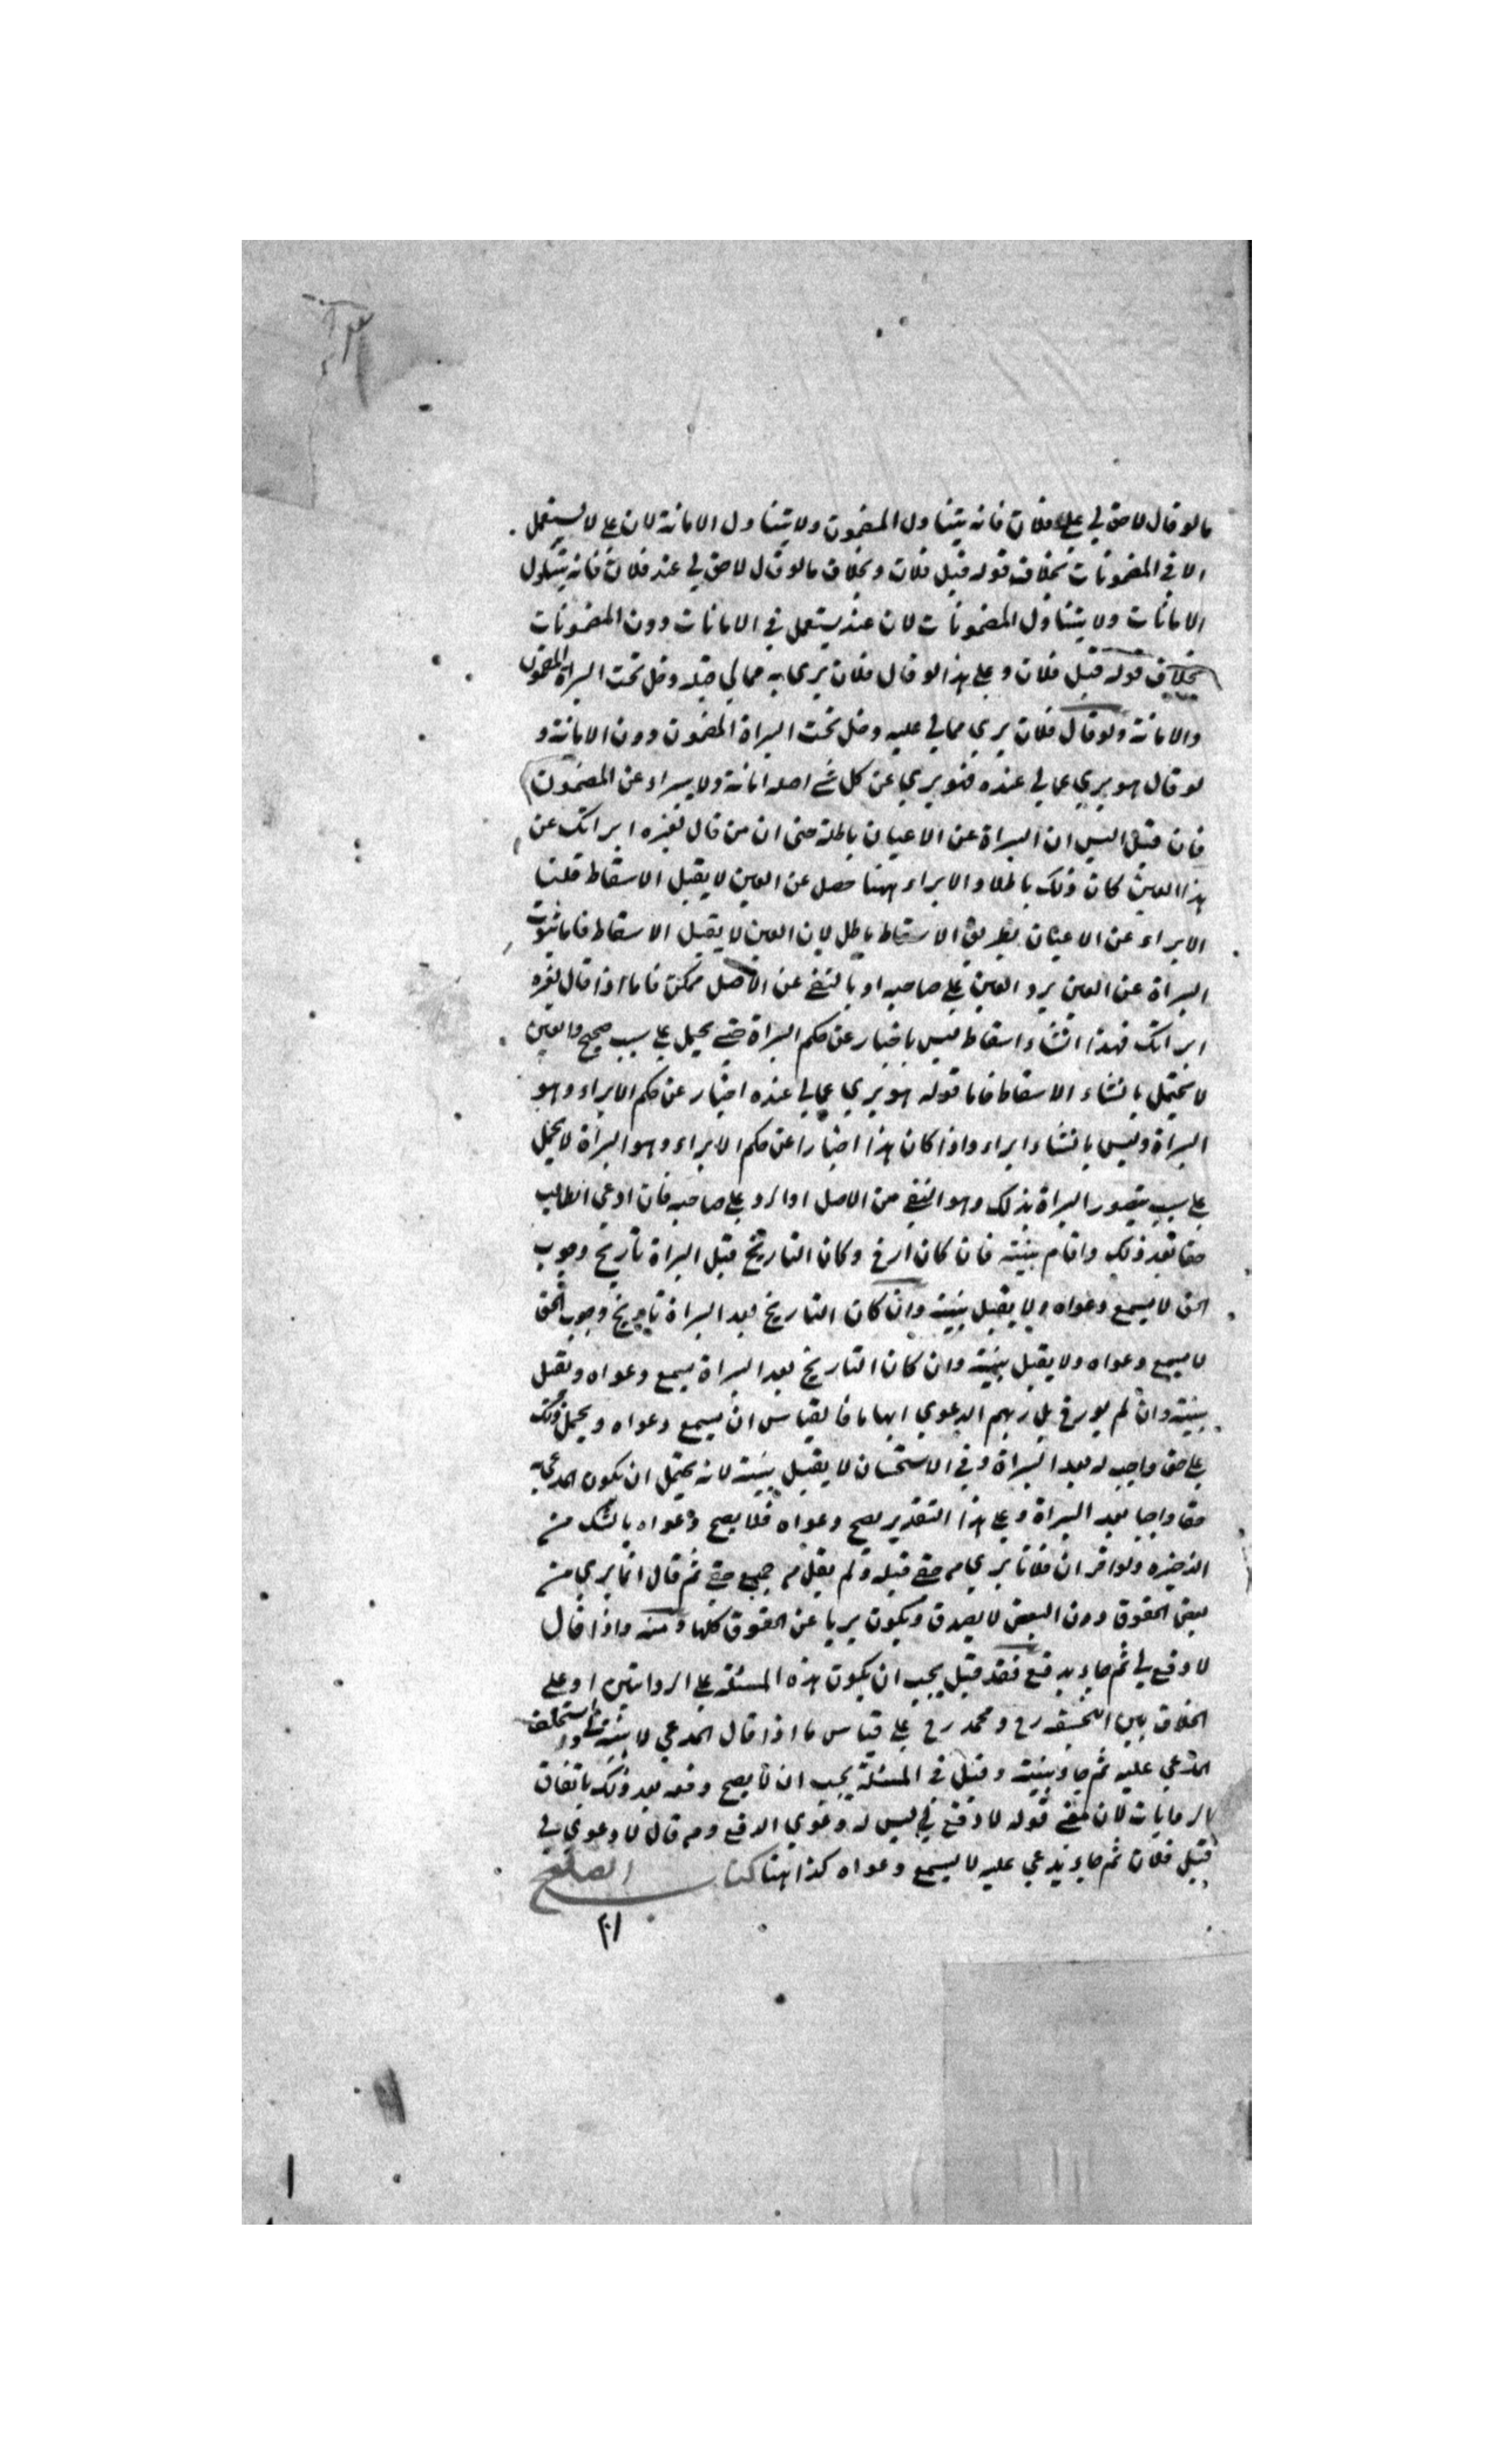 مالو قال لا حق لي على فلان فانه يتناول المضمون ولا يتناول الامانة لان على لا يستعمل
الا في المضمونات بخلاف قوله قبل فلان وبخلاف مالو قال لا حق لي عند فلان فانه يتناول
الامانات ولا يتناول المضمونات لان عند يستعمل في الامانات دون المضمونات
بخلاف قوله قبل فلان وعلى هذا لو قال فلان بري مما لي قبله دخل تحت البراة المضمون
والامانة ولو قال فلان بري مما لي عليه دخل تحت البراة المضمون دون الامانة و
لو قال هو بري مما لي عنده فهو بري عن كل شي اصله امانة ولا يبراء عن المضمون
فان قيل اليس ان البراة عن الاعيان باطلة حتى ان من قال لغيره ابراتك عن
هذا العين كان ذلك باطلا والابراء ههنا حصل عن العين لا يقبل الاسقاط قلنا
الابراء عن الاعيان بطريق الاسقاط باطل لان العين لا يقبل الاسقاط فاما ثبوت
البراة عن العين برد العين على صاحبه او بالنفي عن الاصل ممكن فاما اذا قال لغيره
ابراتك فهذا انشاء اسقاط ليس باخبار عن حكم البراة حتى يحمل على سبب صحيح والعين
لا يحتمل بانشاء الاسقاط فاما قوله هو بري مما لي عنده اخبار عن حكم الابراء وهو
البراة وليس بانشاء ابراء واذا كان هذا اخبارا عن حكم الابراء وهو البراة لا يحمل
على سبب يتصور البراة بذلك وهو النفي من الاصل او الرد على صاحبه فان ادعى الطالب
حقا بعد ذلك واقام بينة فان كان ارخ وكان التاريخ قبل البراة تاريخ وجوب
الحق لا يسمع دعواه ولا يقبل بينته وان كان التاريخ بعد البراة تاريخ وجوب الحق
لا يسمع دعواه ولا يقبل بينته وان كان التاريخ بعد البراة يسمع دعواه ويقبل
بينته وان لم يورخ بل ابهم الدعوي ابهاما فالقياس ان يسمع دعواه ويحمل ذلك
على حق واجب له بعد البراة وفي الاستحسان لا يقبل بينته لانه يحتمل ان يكون المدعى به
حقا واجبا بعد البراة وعلى هذا التقدير يصح دعواه فلا يصح دعواه بالشك من
الذخيره ولو اقر ان فلانا بري من حقي قبله ولم يقل من جميع حقي ثم قال انما بري من
بعض الحقوق دون البعض لا يصدق ويكون بريا عن الحقوق كلها منه واذا قال
لا دفع لي ثم جاء بدفع فقد قيل يجب ان يكون هذه المسئلة على الروايتين او على
الخلاف بين ومحمد رح على قياس ما اذا قال المدعي لا بينة لي واستحلف
المدعي عليه ثم جاء ببينة وقيل في المسئلة يجب ان لا يصح دفعه بعد ذلك باتفاق
الروايات لان معنى قوله لا دفع لي ليس لي دعوي الدفع ومن قال لا دعوي لي
قبل فلان ثم جاء يدعي عليه لا يسمع دعواه كذا هنا كتاب الصلح